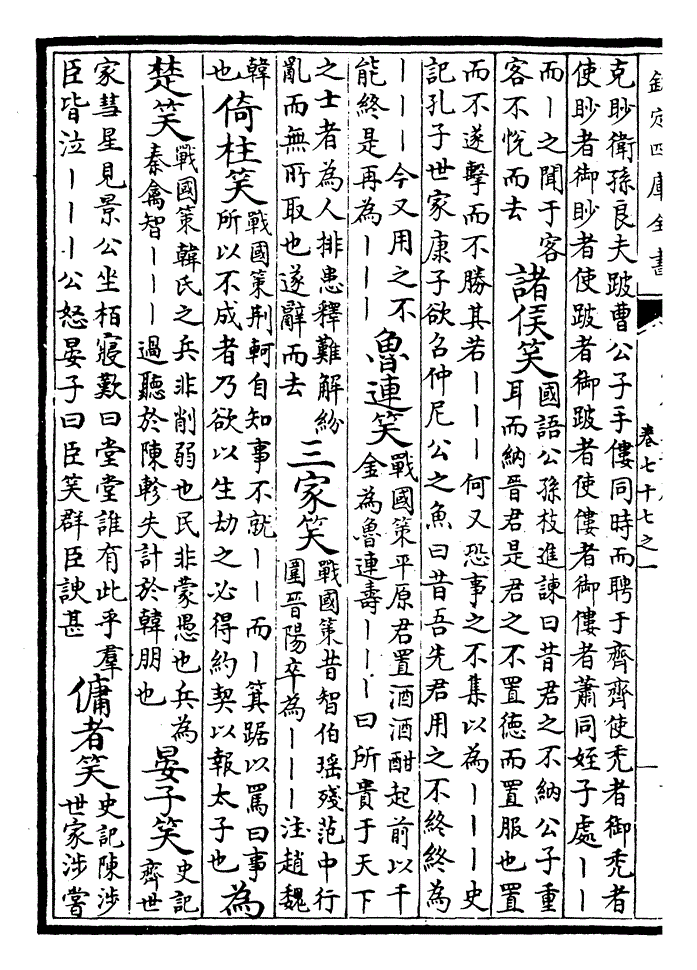 欽定四庫全書
卷七十七之一
克眇衛孫良夫跛曹公子手僂同時而聘于齊齊使禿者御禿者
使眇者御眇者使跛者御跛者使僂者御僂者蕭同姪子處丨丨
而丨之聞于客
客不悅而去
諸侯笑
國語公孫枝進諫曰昔君之不納公子重
耳而納晉君是君之不置德而置服也置
而不遂擊而不勝其若丨丨丨何又恐事之不集以為丨丨丨史
記孔子世家康子欲召仲尼公之魚曰昔吾先君用之不終終為
丨丨丨今又用之不
能終是再為丨丨丨
魯連笑
戰國策平原君置酒酒酣起前以千
金為魯連壽丨丨丨曰所貴于天下
之士者為人排患釋難解紛
亂而無所取也遂辭而去
三家笑
戰國策昔智伯瑤殘范中行
圍晉陽卒為丨丨丨注趙魏
韓
也
倚柱笑
戰國策荆軻自知事不就丨丨而丨箕踞以罵曰事
所以不成者乃欲以生劫之必得約契以報太子也
為
楚笑
戰國策韓氏之兵非削弱也民非蒙愚也兵為
秦禽智丨丨丨過聽於陳軫失計於韓朋也
晏子笑
史記
齊世
家彗星見景公坐栢寢歎曰堂堂誰有此乎羣
臣皆泣丨丨丨公怒晏子曰臣笑群臣諛甚
傭者笑
史記陳涉
世家涉嘗